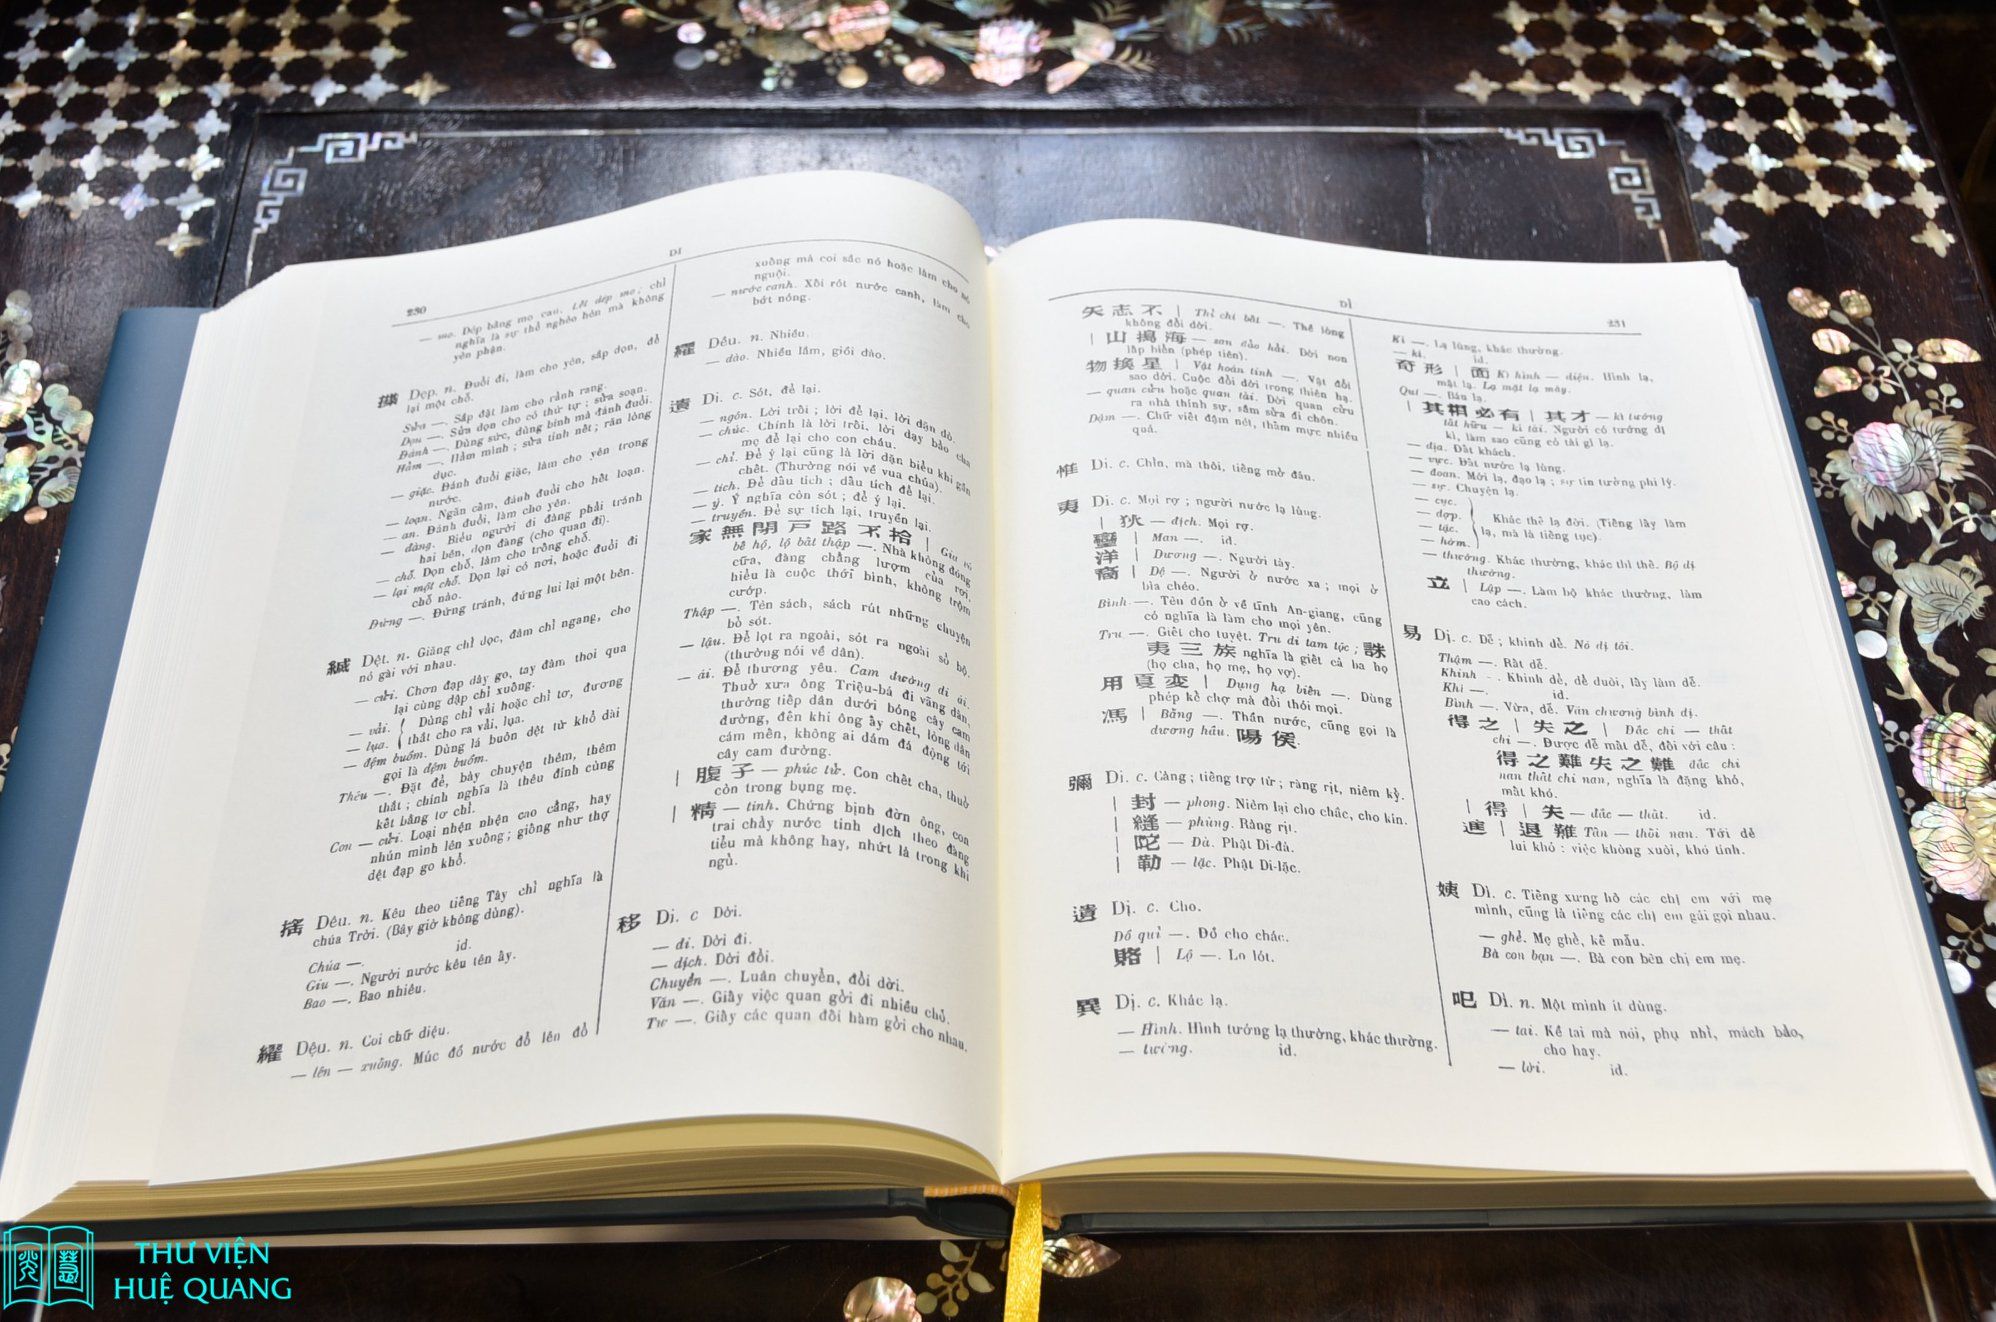 230
DI
— mo. Dép bằng mo cau. Lết dép mo; chỉ
nghĩa là sự thể nghèo hèn mà không
yên phận.
Dẹp. n. Đuổi đi, làm cho yên, sắp dọn, để
lại một chỗ.
Sửa —. Sắp đặt làm cho rảnh rang.
Dọn —. Sửa dọn cho có thứ tự; sửa soạn.
Đánh —. Dùng sức, dùng binh mà đánh đuổi.
Hầm —. Hầm mình; sửa tính nết; răn lòng
dục.
— giặc. Đánh đuổi giặc, làm cho yên trong
nước.
— loạn. Ngăn cấm, đánh đuổi cho hết loạn.
— an. Đánh đuổi, làm cho yên.
— đàng. Biểu người đi đàng phải tránh
hai bên, dọn đàng (cho quan đi).
— chỗ. Dọn chỗ, làm cho trống chỗ.
— lại một chỗ. Dọn lại có nơi, hoặc đuổi đi
chỗ nào.
Đứng —. Đứng tránh, đứng lui lại một bên.
Dệt. n. Giăng chỉ dọc, đâm chỉ ngang, cho
nó gài với nhau.
— cửi. Chơn đạp dây go, tay đâm thoi qua
lại cùng dập chỉ xuống.
— vải. { Dùng chỉ vải hoặc chỉ tơ, đương
— lụa. { thắt cho ra vải, lụa.
— đệm buồm. Dùng lá buôn dệt từ khổ dài
gọi là đệm buồm.
Thêu —. Đặt để, bày chuyện thêm, thêm
thắt; chính nghĩa là thêu đính cùng
kết bằng tơ chỉ.
Con — cửi. Loại nhện nhện cao cẳng, hay
nhún mình lên xuống; giống như thợ
dệt đạp go khổ.
Dêu. n. Kêu theo tiếng Tây chỉ nghĩa là
chúa Trời. (Bây giờ không dùng).
Chúa —. id.
Giu —. Người nước kêu tên ấy.
Bao —. Bao nhiêu.
Dệu. n. Coi chữ diệu.
— lên — xuống. Múc đồ nước đổ lên đổ
xuống mà coi sắc nó hoặc làm cho nó
nguội.
— nước canh. Xối rót nước canh, làm cho
bớt nóng.
Dều. n. Nhiều.
— dào. Nhiều lắm, giồi dào.
遺 Di. c. Sót, để lại.
— ngôn. Lời trối; lời để lại, lời dặn dò.
— chúc. Chính là lời trối, lời dạy bảo cha
mẹ để lại cho con cháu.
— chỉ. Để ý lại cũng là lời dặn biểu khi gần
chết. (Thường nói về vua chúa).
— tích. Để dấu tích; dấu tích để lại.
— ý. Ý nghĩa còn sót; để ý lại.
— truyền. Để sự tích lại, truyền lại.
家 無 閉 戸 路 不 拾 | Gia vô
bế hộ, lộ bất thập —. Nhà không đóng
cửa, đàng chẳng lượm của rơi,
hiểu là cuộc thới bình, không trộm
cướp.
Thập —. Tên sách, sách rút những chuyện
bỏ sót.
— lậu. Để lọt ra ngoài, sót ra ngoài sổ bộ.
(thường nói về dân).
— ái. Để thương yêu. Cam đường di ái.
Thuở xưa ông Triệu-bá đi vãng dân,
thường tiếp dân dưới bóng cây cam
đường, đến khi ông ấy chết, lòng dân
cám mến, không ai dám đá động tới
cây cam đường.
| 腹 子 — phúc tử. Con chết cha, thuở
còn trong bụng mẹ.
| 精 — tinh. Chứng bịnh đờn ông, con
trai chảy nước tinh dịch theo đàng
tiểu mà không hay, nhứt là trong khi
ngủ.
移 Di. c Dời.
— đi. Dời đi.
— dịch. Dời đổi.
Chuyển —. Luân chuyển, đổi dời.
Văn —. Giấy việc quan gởi đi nhiều chỗ.
Tư —. Giấy các quan đồi hàm gởi cho nhau.
DỈ
231
矢 志 不 | Thỉ chí bất —. Thề lòng
không đổi dời.
| 山 搗 海 — san đảo hải. Dời non
lấp biển (phép tiên).
物 換 星 | Vật hoán tinh —. Vật đổi
sao dời. Cuộc đổi dời trong thiên hạ.
— quan cửu hoặc quan tài. Dời quan cửu
ra nhà thính sự, sắm sửa đi chôn.
Dậm —. Chữ viết đậm nét, thấm mực nhiều
quá.
惟 Di. c. Chỉn, mà thôi, tiếng mở đầu.
夷 Di. c. Mọi rợ; người nước lạ lùng.
| 狄 — địch. Mọi rợ.
蠻 | Man —. id.
洋 | Dương —. Người tây.
裔 | Dệ —. Người ở nước xa; mọi ở
bìa chéo.
Bình —. Tên đồn ở về tỉnh An-giang, cũng
có nghĩa là làm cho mọi yên.
Tru —. Giết cho tuyệt. Tru di tam tộc; 誅
夷 三 族 nghĩa là giết cả ba họ
(họ cha, họ mẹ, họ vợ).
用 夏 変 | Dụng hạ biến —. Dùng
phép kẻ chợ mà đổi thói mọi.
馮 | Bằng —. Thần nước, cũng gọi là
dương hầu. 陽 侯.
彌 Di. c. Càng; tiếng trợ từ; ràng rịt, niêm kỹ.
| 封 — phong. Niêm lại cho chắc, cho kín.
| 縫 — phùng. Ràng rịt.
| 陀 — Đà. Phật Di-đà.
| 勒 — lặc. Phật Di-lặc.
遺 Dị. c. Cho.
Đồ quỉ —. Đồ cho chác.
賂 | Lộ —. Lo lót.
異 Dị. c. Khác lạ.
— Hình. Hình tướng lạ thường, khác thường.
— tướng. id.
Kì —. Lạ lùng, khác thường.
— kì. id.
奇 形 | 面 Kì hình — diện. Hình lạ,
mặt lạ. Lạ mặt lạ mày.
Quí —. Báu lạ.
| 其相必有 | 其才 — kì tướng
tất hữu — kì tài. Người có tướng dị
kì, làm sao cũng có tài gì lạ.
— địa. Đất khách.
— vực. Đất nước lạ lùng.
— đoan. Mới lạ, đạo lạ; sự tin tưởng phi lý.
— sự. Chuyện lạ.
— cục.
— dợp. } Khác thể lạ đời. (Tiếng lấy làm
— tậc. } lạ, mà là tiếng tục).
— hờm.
— thường. Khác thường, khác thì thế. Bộ dị
thường.
立 | Lập —. Làm bộ khác thường, làm
cao cách.
易 Dị. c. Dễ; khinh dể. Nó dị tôi.
Thậm —. Rất dễ.
Khinh —. Khinh dể, dể duôi, lấy làm dễ.
Khi —. id.
Bình —. Vừa, dễ. Văn chương bình dị.
得 之 | 失 之 | Đắc chi — thất
chi —. Được dễ mất dễ, đối với câu:
得 之 難 失 之 難 đắc chi
nan thất chi nan, nghĩa là đặng khó,
mất khó.
| 得 | 失 — đắc — thất. id.
進 | 退 難 Tấn — thối nan. Tới dễ
lui khó: việc không xuôi, khó tính.
姨 Dì. c. Tiếng xưng hô các chị em với mẹ
mình, cũng là tiếng các chị em gái gọi nhau.
— ghẻ. Mẹ ghẻ, kế mẫu.
Bà con bạn —. Bà con bên chị em mẹ.
吧 Dỉ. n. Một mình ít dùng.
— tai. Kề tai mà nói, phụ nhỉ, mách bảo,
cho hay.
— lời. id.
THƯ VIỆN
HUỆ QUANG